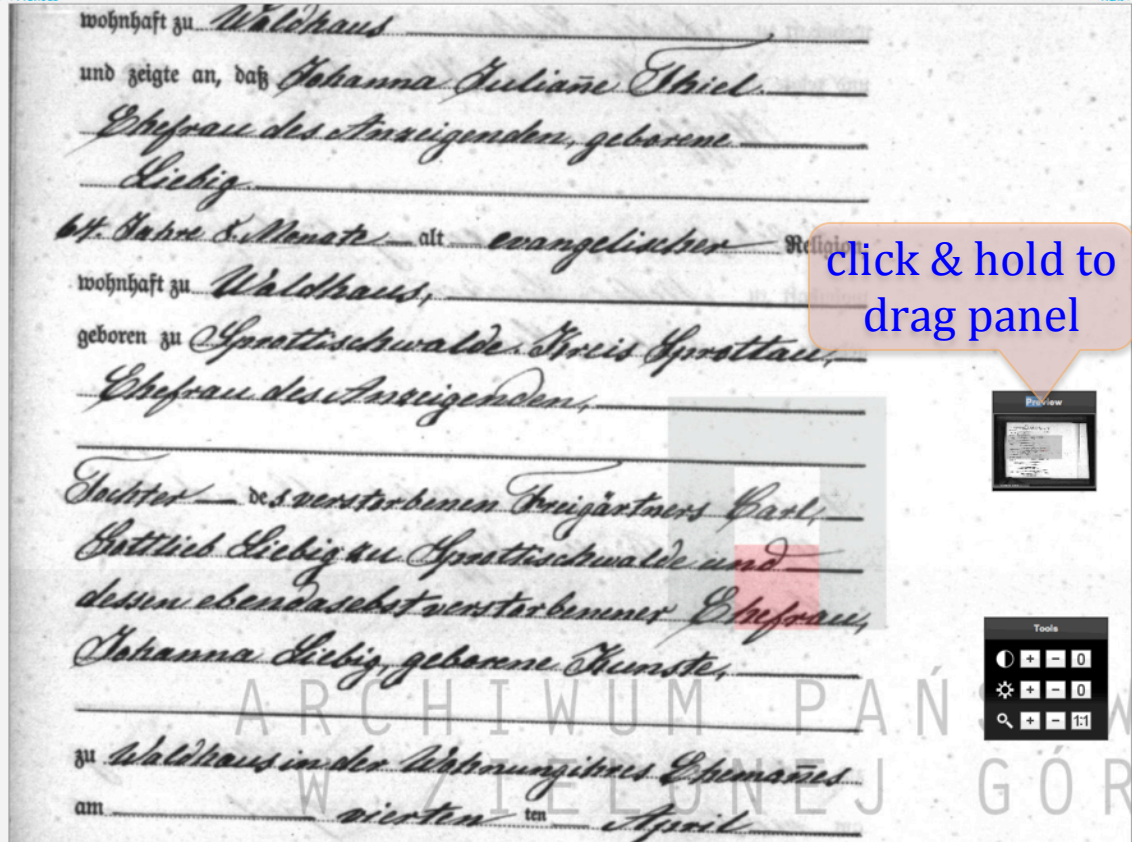 wohnhaft zu Waldhaus
und zeigte an, daß Johanna Juliane Thiel
Ehefrau des Anzeigenden, geborene
Liebig
64. Jahre 8. Monate alt evangelischer Religion,
wohnhaft zu Waldhaus,
geboren zu Sprottischwalde. Kreis Sprottau,
Ehefrau des Anzeigenden,
Tochter des verstorbenen Freigärtners Carl,
Gottlieb Liebig zu Sprottischwalde und
dessen ebendasebst verstorbenner Ehefrau,
Johanna Liebig, geborene Kunste,
zu Waldhaus in der Wohnung ihres Eheman̄es
am vierten ten April
click & hold to
drag panel
Preview
Tools
+ - 0
+ - 0
+ - 1:1
ARCHIWUM PAŃ W
W ZIELONEJ GÓR